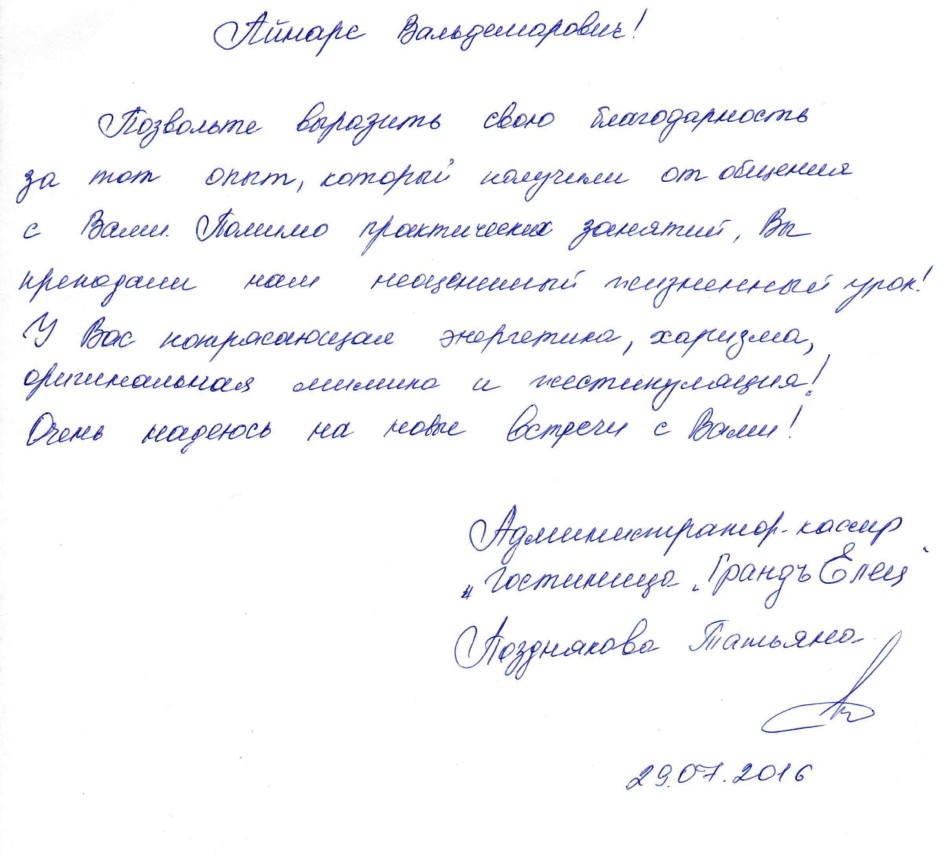 Айнарс Вальдемарович!
Позвольте выразить свою благодарность
за тот опыт, который получили от общения
с Вами. Помимо практических занятий, Вы
преподали нам неоценимый жизненный урок!
У Вас потрясающая энергетика, харизма,
оригинальная мимика и жестикуляция!
Очень надеюсь на новые встречи с Вами!
Администратор-кассир
„Гостиница „Грандъ Елец"
Позднякова Татьяна
29.07.2016